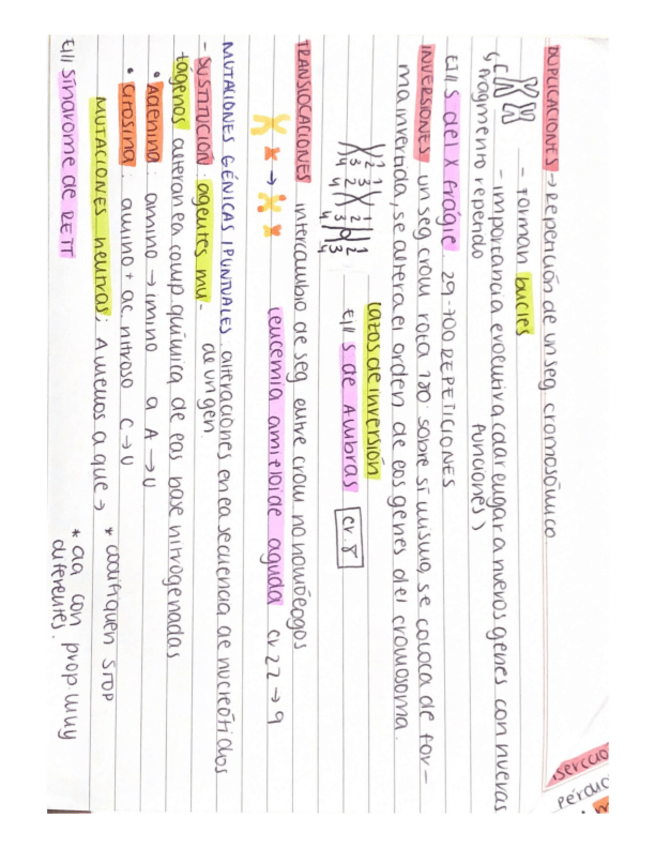 DUPLICACIONES → Repetición de un seg. cromosómico.
- Forman bucles
- importancia evolutiva (dar lugar a nuevos genes con nuevas funciones)
↳ Fragmento repetido
Ej// S del X Frágil. 29-700 REPETICIONES
INVERSIONES un seg crom rota 180º sobre sí mismo, se coloca de for-
ma invertida, se altera el orden de los genes del cromosoma.
Lazos de inversión
Ej// S de Ambras Cr. 8
TRANSLOCACIONES intercambio de seg entre crom no homólogos
Leucemia amieloide aguda cr 22 → 9
MUTACIONES GÉNICAS (PUNTUALES) alteraciones en la secuencia de nucleótidos
de un gen.
- SUSTITUCIÓN: agentes mu-
tágenos alteran la comp. química de las base nitrogenadas
• Adenina: amino → imino a A → U
• Citosina: amino + ac. nitroso C → U
MUTACIONES neutras: A menos a que → * codifiquen STOP
* aa con prop. muy
diferentes.
Ej// Síndrome de RETT